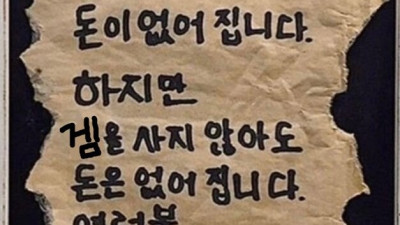 돈이 없어 집니다.
하지만
겜을 사지 않아도
돈은 없어 집니다.
여러분